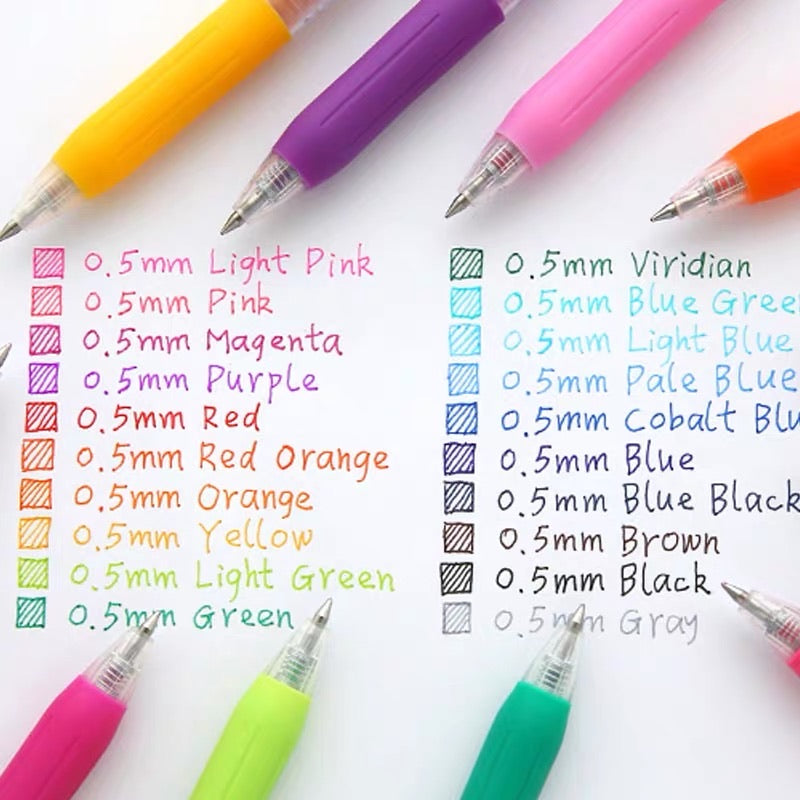 0.5mm Light Pink
0.5mm Pink
0.5mm Magenta
0.5mm Purple
0.5mm Red
0.5mm Red Orange
0.5mm Orange
0.5mm Yellow
0.5mm Light Green
0.5mm Green
0.5mm Viridian
0.5mm Blue Gree
0.5mm Light Blue
0.5mm Pale Blue
0.5mm Cobalt Blu
0.5mm Blue
0.5mm Blue Black
0.5mm Brown
0.5mm Black
0.5mm Gray